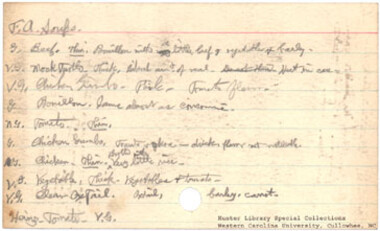 F.A. Soups.
G. Beef, Thin. Bouillon with little beef & vegetable & barley.
V.G. Mock Turtle Thick, blend of veal. Heat in can.
V.G. Chicken Gumbo - Thick - Tomato flavor -
G. Bouillon. Same about as consomme.
N.G. Tomato. Thin.
G. Chicken Gumbo, Tomato & okra - chicken flavor not
N.G. Chicken Thin, very little rice -
V.G. Vegetable, Thick - Vegetables & tomato -
V.G. Clear Oxtail. barley, carrot.
Heinz Tomato V.G.
Hunter Library Special Collections
Western Carolina University, Cullowhee, NC